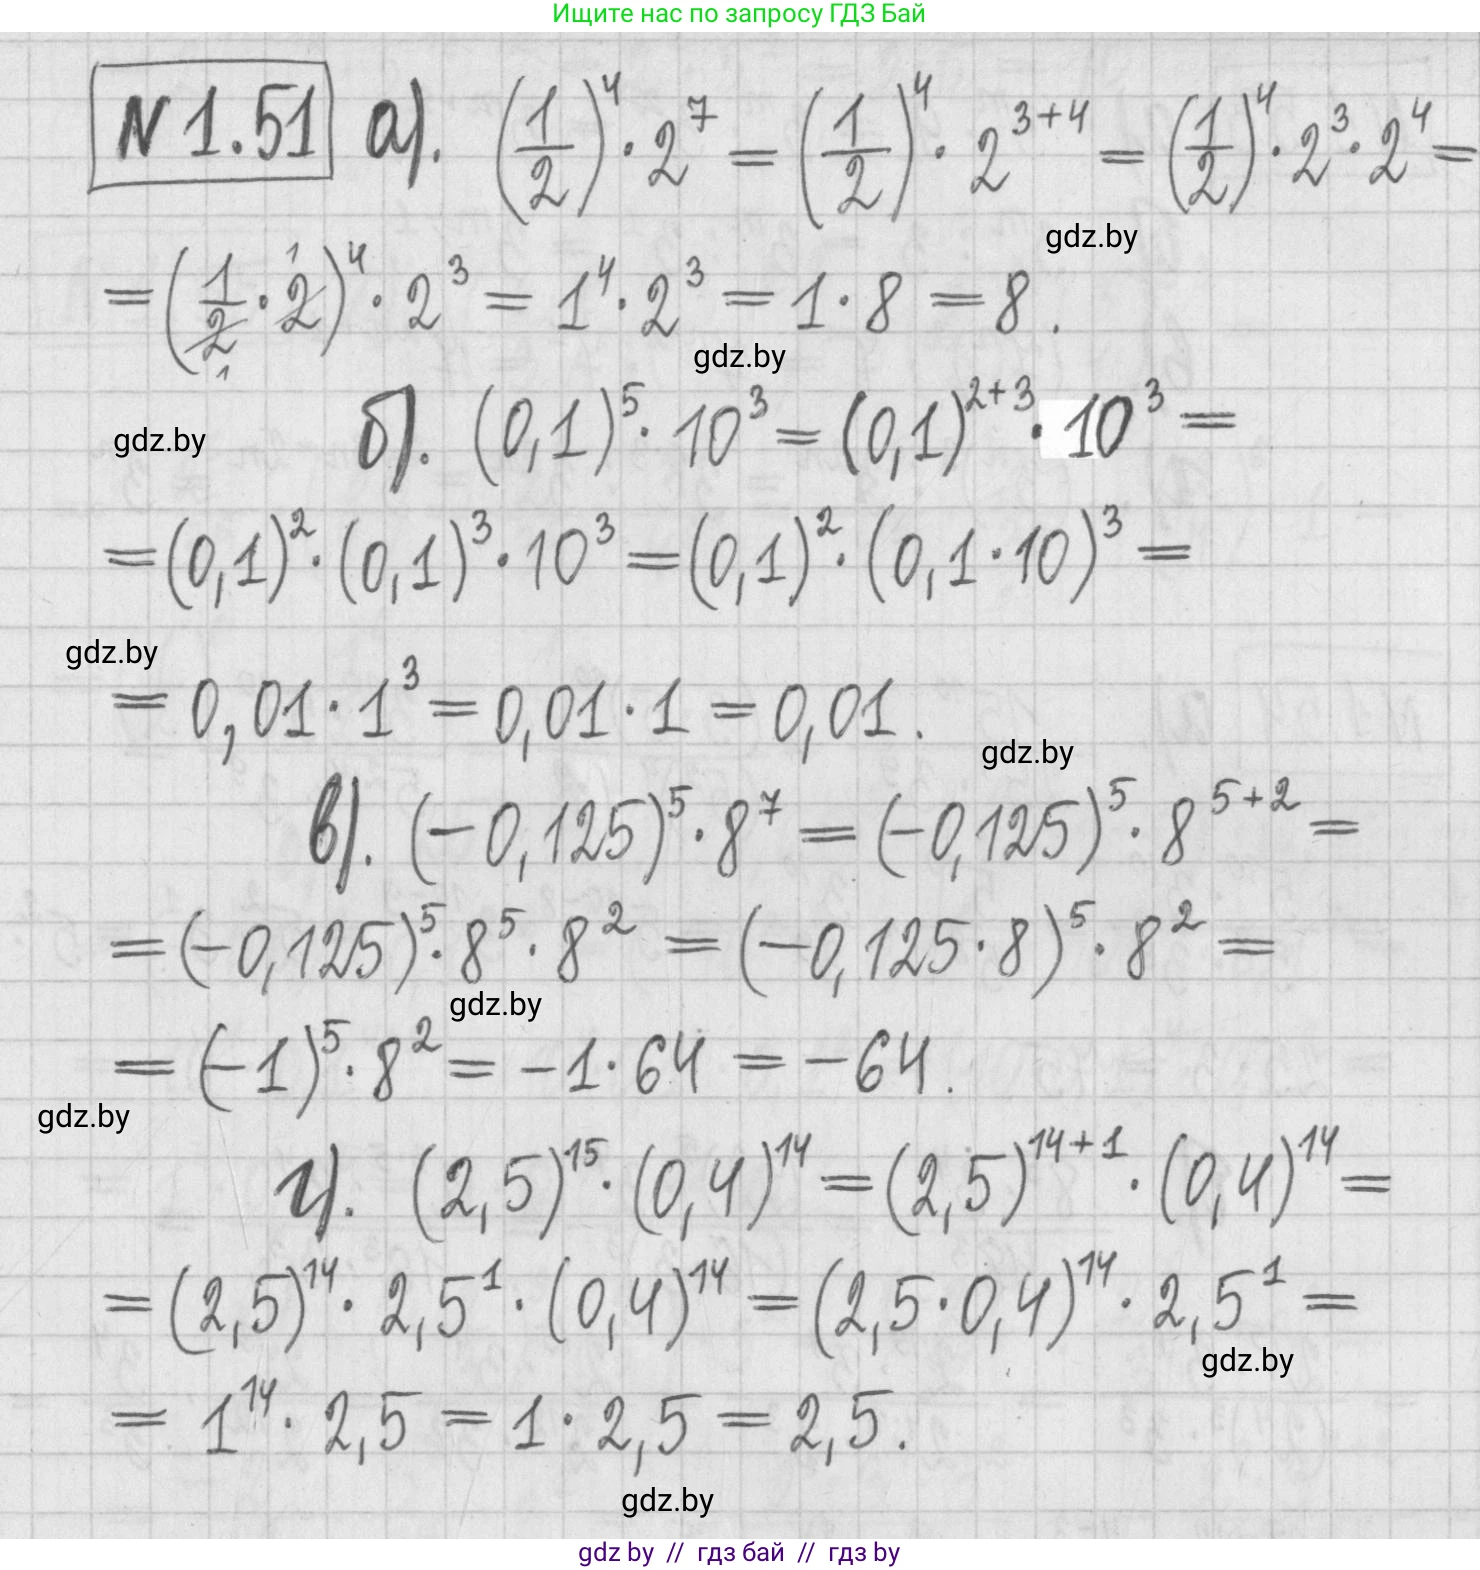 Ищите нас по запросу ГДЗ Бай
N 1.51 а). (1/2)⁴ · 2⁷ = (1/2)⁴ · 2³⁺⁴ = (1/2)⁴ · 2³ · 2⁴ =
gdz.by
= (1/2 · 2)⁴ · 2³ = 1⁴ · 2³ = 1 · 8 = 8.
gdz.by
б). (0,1)⁵ · 10³ = (0,1)²⁺³ · 10³ =
gdz.by
= (0,1)² · (0,1)³ · 10³ = (0,1)² · (0,1 · 10)³ =
gdz.by
= 0,01 · 1³ = 0,01 · 1 = 0,01.
gdz.by
в). (−0,125)⁵ · 8⁷ = (−0,125)⁵ · 8⁵⁺² =
= (−0,125)⁵ · 8⁵ · 8² = (−0,125 · 8)⁵ · 8² =
gdz.by
= (−1)⁵ · 8² = −1 · 64 = −64.
gdz.by
г). (2,5)¹⁵ · (0,4)¹⁴ = (2,5)¹⁴⁺¹ · (0,4)¹⁴ =
= (2,5)¹⁴ · 2,5¹ · (0,4)¹⁴ = (2,5 · 0,4)¹⁴ · 2,5¹ =
gdz.by
= 1¹⁴ · 2,5 = 1 · 2,5 = 2,5.
gdz.by
gdz by // гдз бай // гдз by